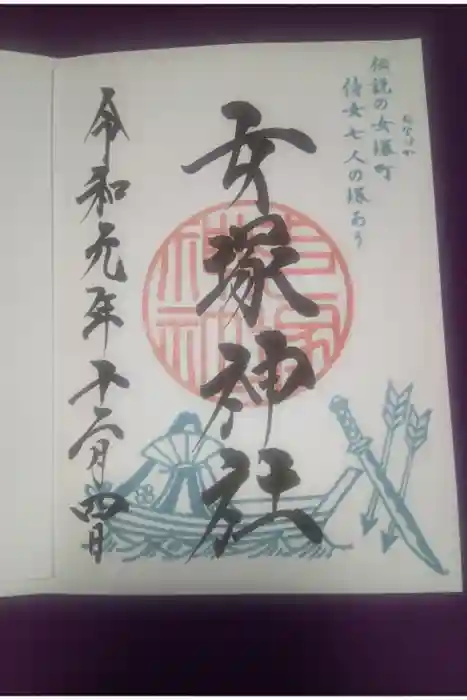 伝説の女塚町
おなづか
侍女七人の塚あり
女塚神社
令和元年十二月四日